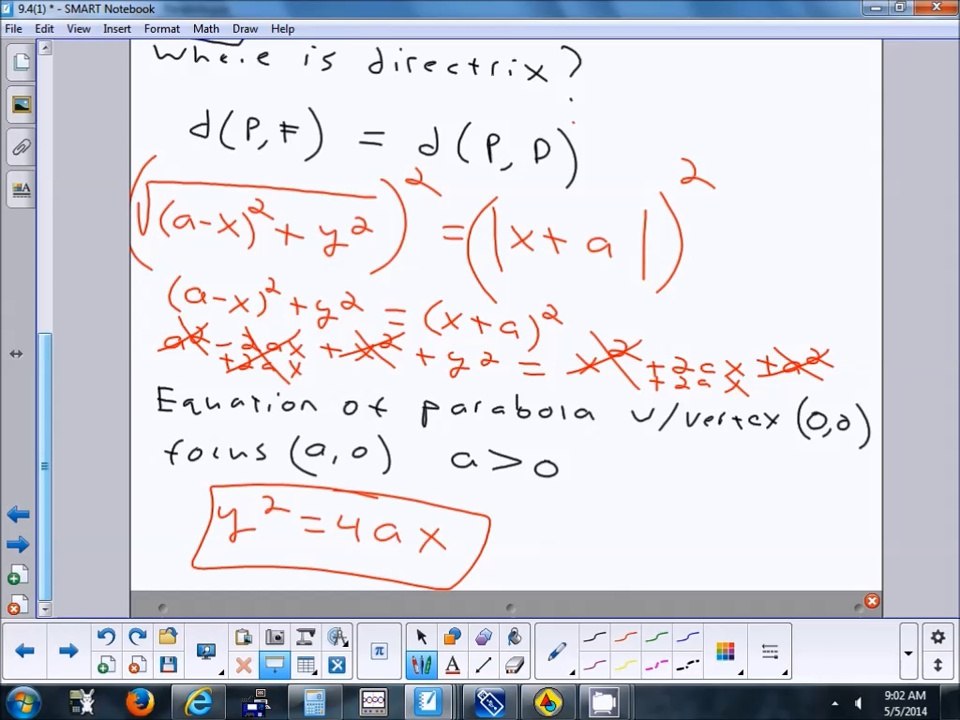 9.4(1) * - SMART Notebook
File Edit View Insert Format Math Draw Help
Where is directrix?
d(P, F) = d(P, D)
(√(a-x)² + y²)² = (|x + a|)²
(a-x)² + y² = (x+a)²
a² - 2ax + x² + y² = x² + 2ax + a²
+2ax +2ax
Equation of parabola w/vertex (0,0)
focus (a,0) a > 0
y² = 4ax
9:02 AM
5/5/2014